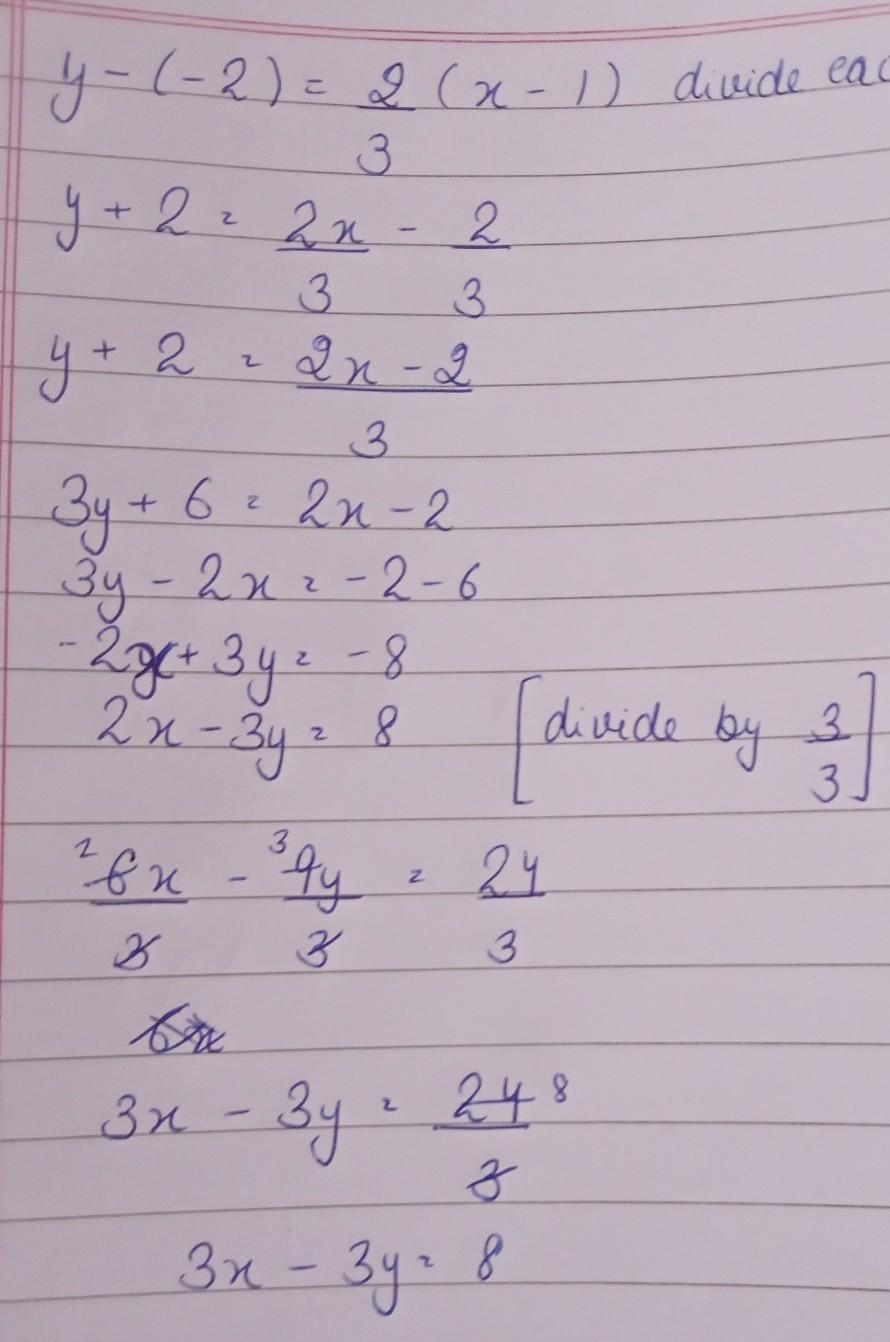 y - (-2) = 2/3 (x - 1) divide eac
y + 2 = 2x/3 - 2/3
y + 2 = (2x - 2)/3
3y + 6 = 2x - 2
3y - 2x = -2 - 6
-2x + 3y = -8
2x - 3y = 8 [divide by 3/3]
2 6x/3 - 3 9y/3 = 24/3
3x - 3y = 24/3 8
3x - 3y = 8